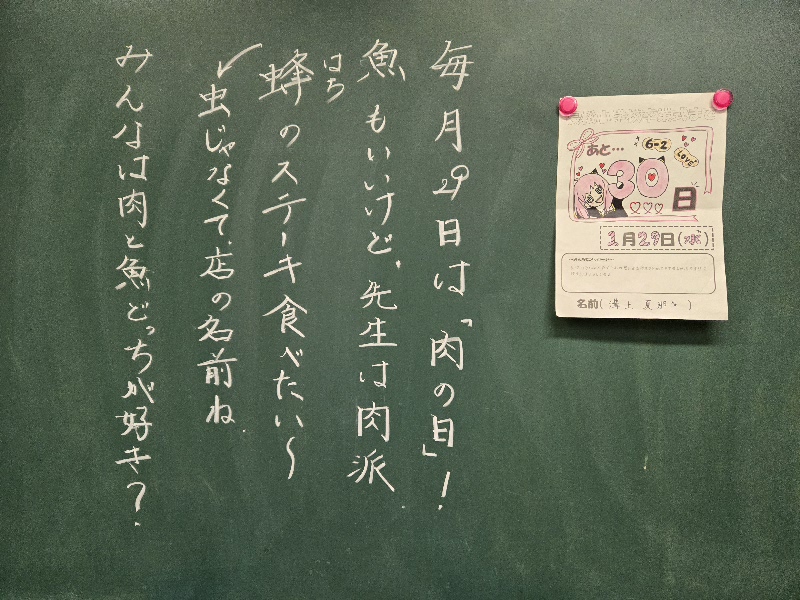 毎月29日は「肉の日」！
魚もいいけど、先生は肉派
はち
蜂のステーキ食べたい〜
✓虫じゃなくて、店の名前ね
みんなは肉と魚どっちが好き？
あと…
6-2
LOVE
30
日
1月29日(水)
名前(